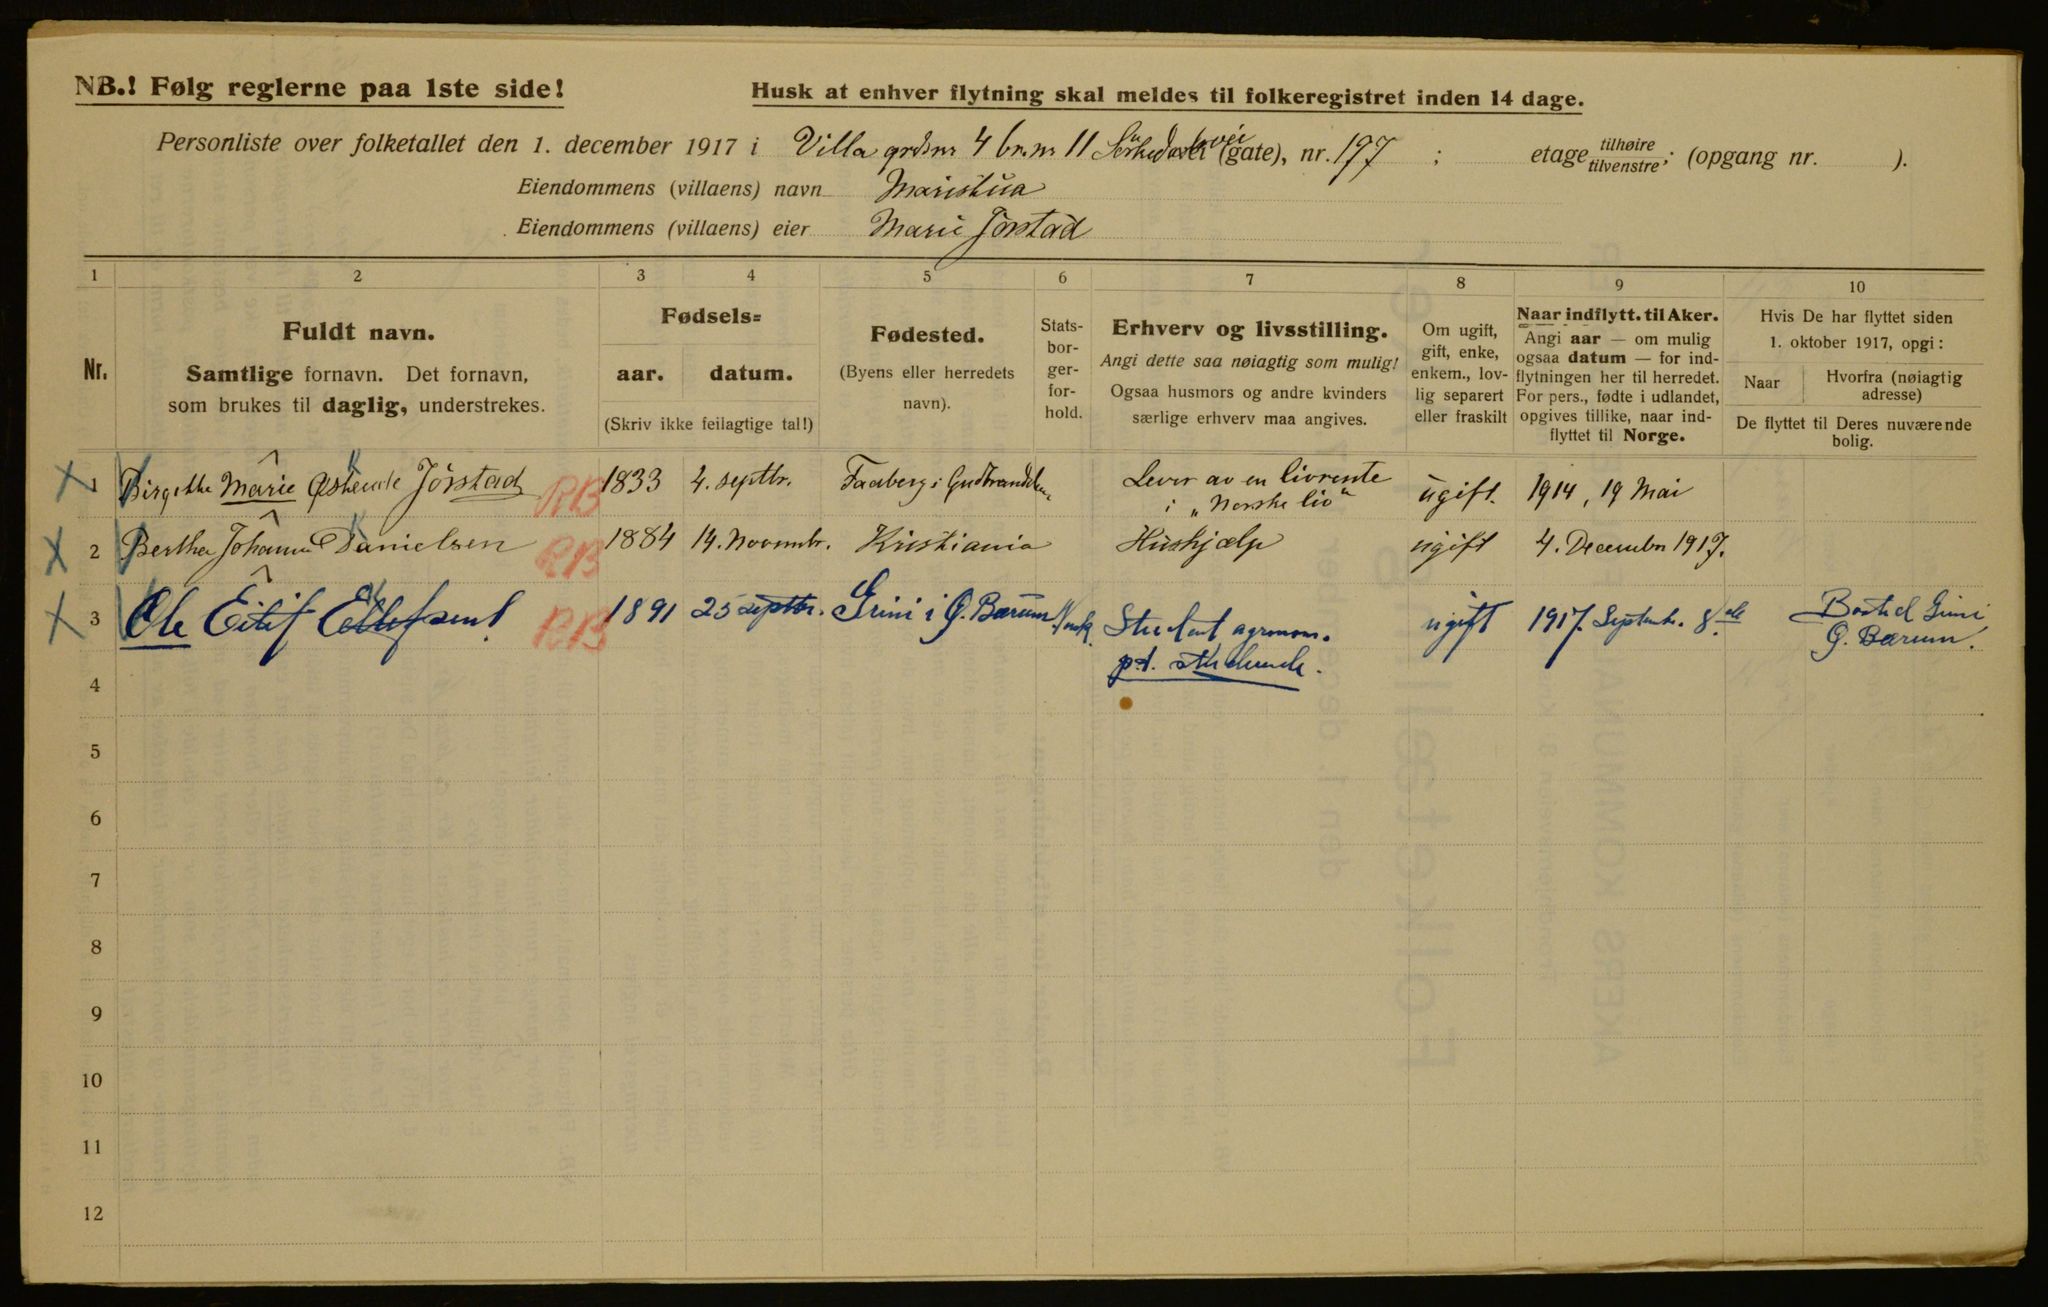 NB.! Følg reglerne paa 1ste side!
Husk at enhver flytning skal meldes til folkeregistret inden 14 dage.
Personliste over folketallet den 1. december 1917 i Villa grdsnr 4 br.nr 11 (gate), nr. 197 ; etage tilhøire tilvenstre; (opgang nr. ).
Eiendommens (villaens) navn Maristua
Eiendommens (villaens) eier Marie Jørstad
1 2 3 4 5 6 7 8 9 10
Nr.
Fuldt navn.
Samtlige fornavn. Det fornavn,
som brukes til daglig, understrekes.
Fødsels=
aar. datum.
(Skriv ikke feilagtige tal!)
Fødested.
(Byens eller herredets
navn).
Stats-
bor-
ger-
for-
hold.
Erhverv og livsstilling.
Angi dette saa nøiagtig som mulig!
Ogsaa husmors og andre kvinders
særlige erhverv maa angives.
Om ugift,
gift, enke,
enkem., lov-
lig separert
eller fraskilt
Naar indflytt. til Aker.
Angi aar — om mulig
ogsaa datum — for ind-
flytningen her til herredet.
For pers., fødte i udlandet,
opgives tillike, naar ind-
flyttet til Norge.
Hvis De har flyttet siden
1. oktober 1917, opgi:
Naar
Hvorfra (nøiagtig
adresse)
De flyttet til Deres nuværende
bolig.
1 Birgitte Marie Jørstad RB 1833 4. septbr. Faaberg i Lever av en livrente ugift. 1914, 19 Mai
i „Norske liv"
2 Berthe Johanne Danielsen RB 1884 14. Novembr. Kristiania Hushjælp ugift 4. December 1917.
3 Ole Eilif Ellefsen RB 1891 25 septbr. Grini i Ø. Bærum Norsk. Student agronom. ugift 1917. Septembr. 8de Grini
Ø. Bærum.
p.t. studerende.
4
5
6
7
8
9
10
11
12